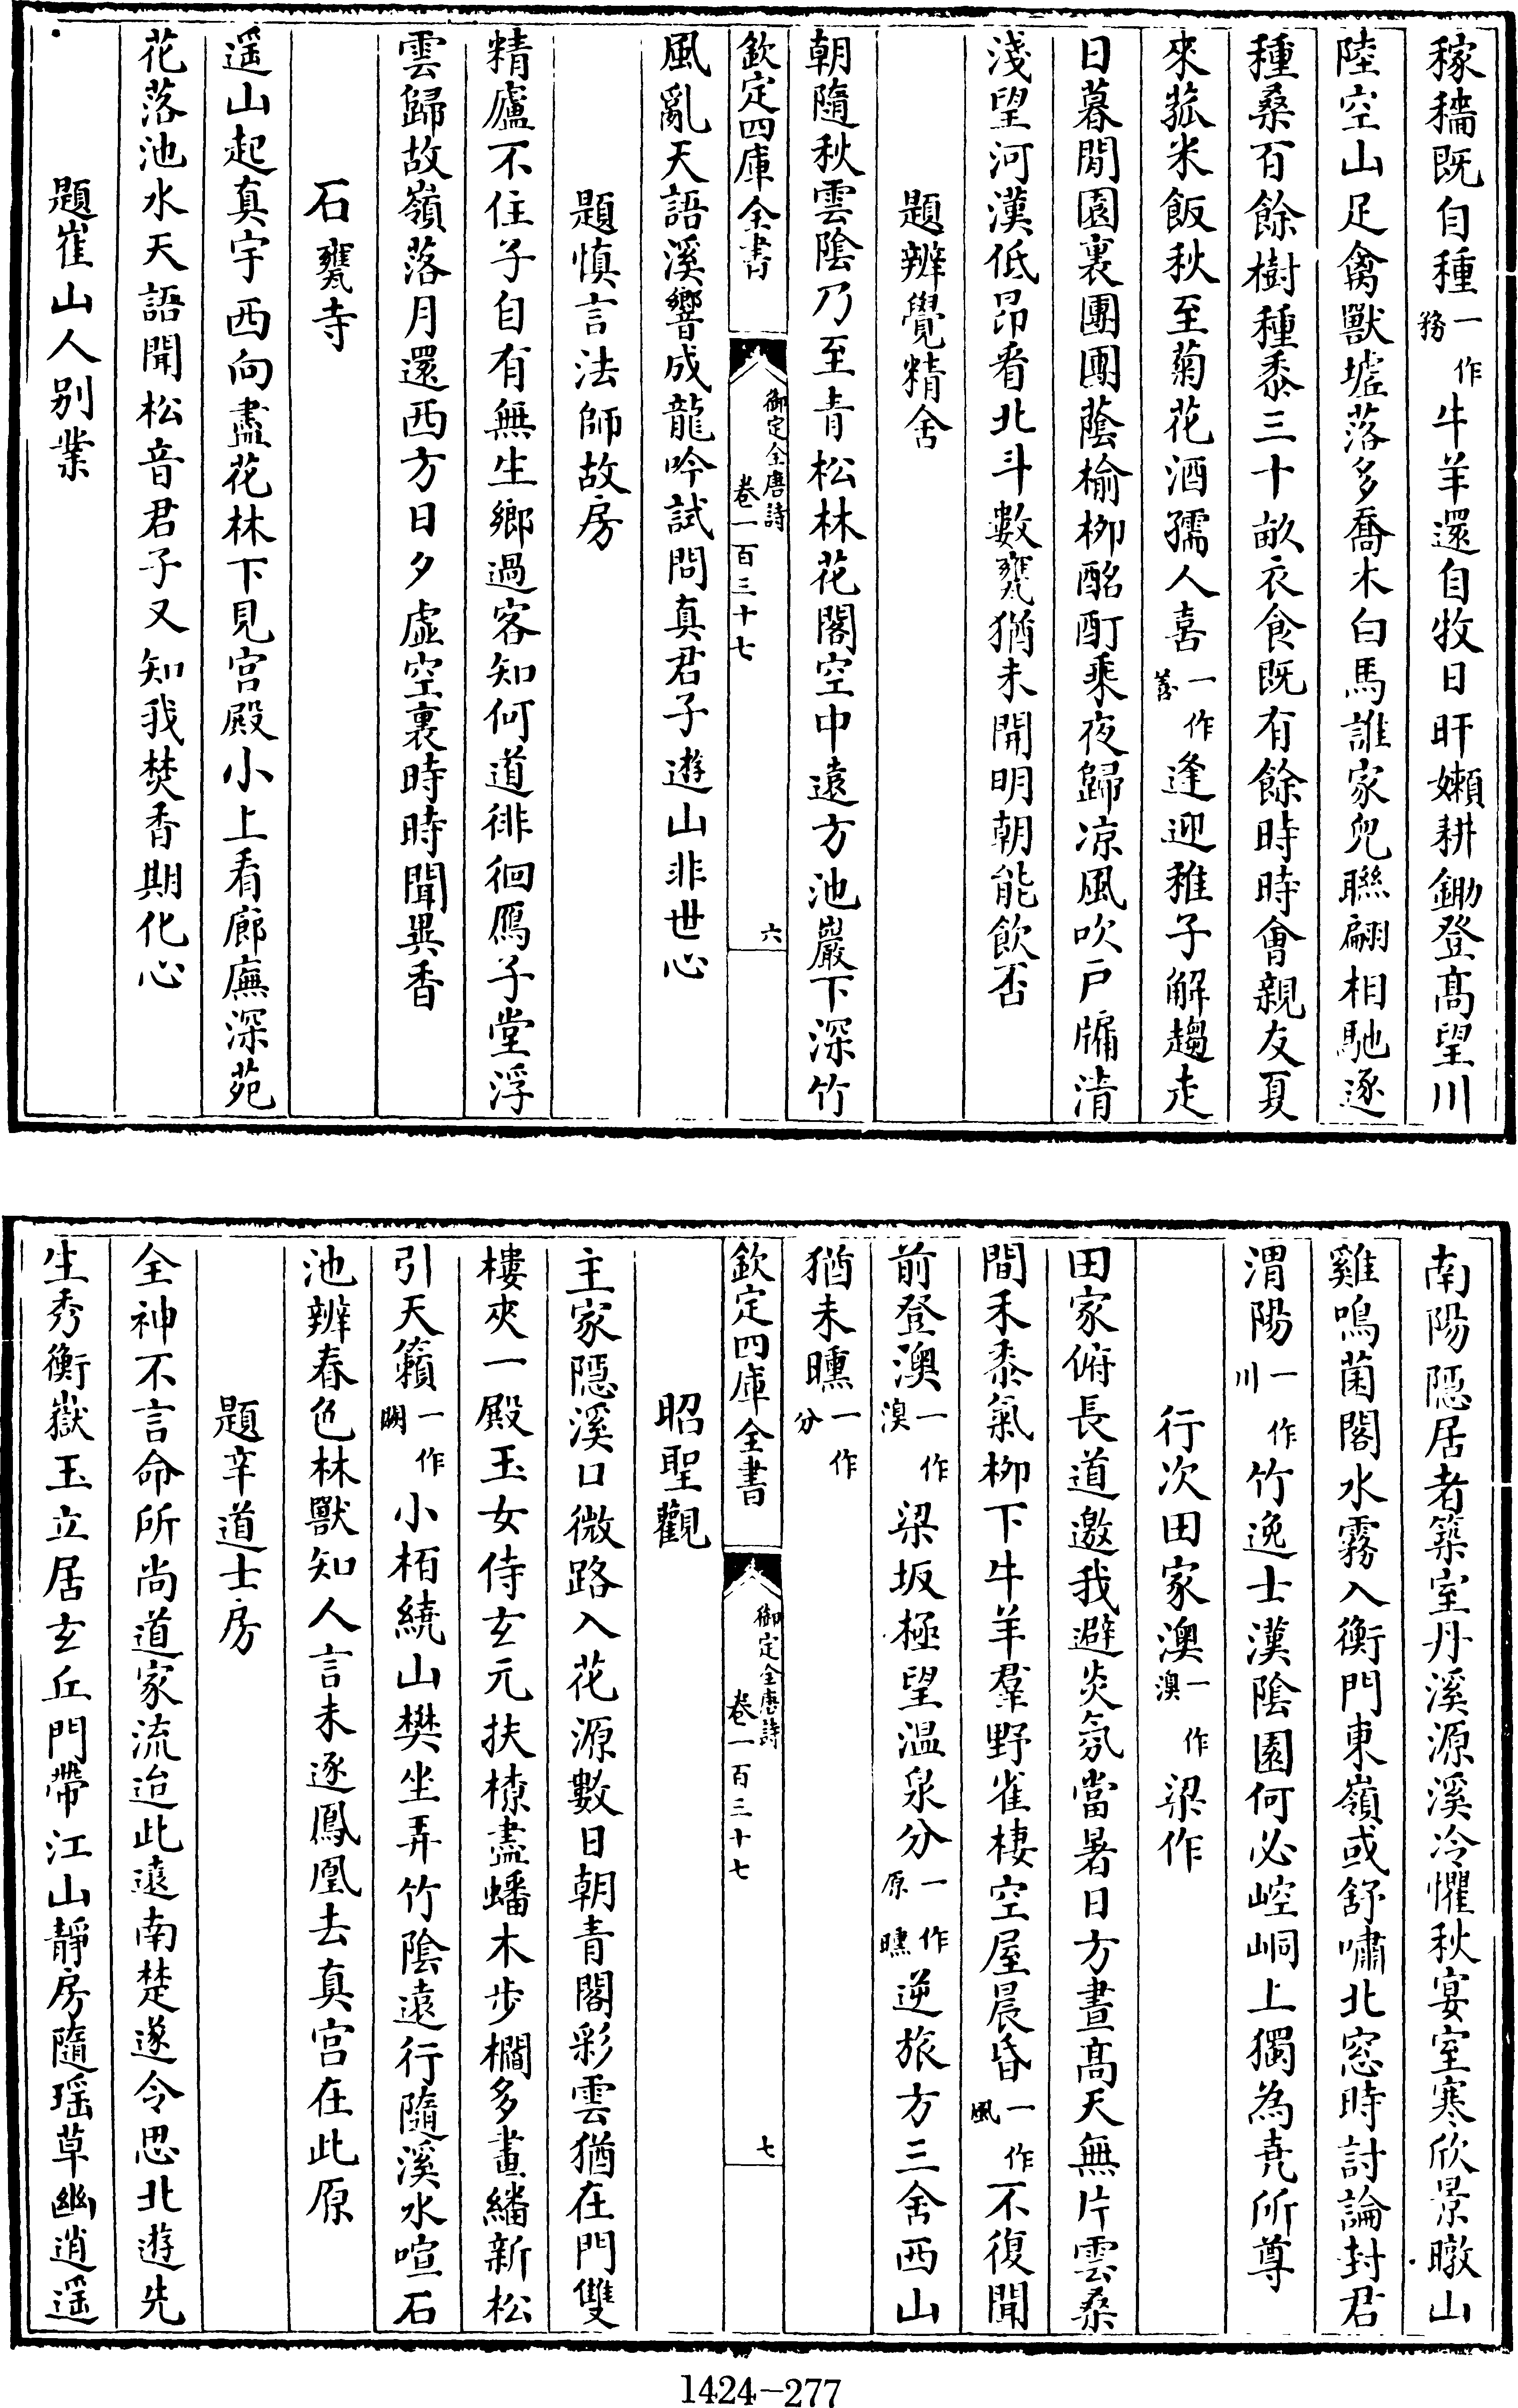 稼穡既自種一作務牛羊還自牧日旰嬾耕鋤登髙望川
陸空山足禽獸墟落多喬木白馬誰家兒聯翩相馳逐
種桑百餘樹種黍三十畝衣食既有餘時時會親友夏
來菰米飯秋至菊花酒孺人喜一作善逢迎稚子解趨走
日暮閒園裏團團蔭榆柳酩酊乘夜歸凉風吹戸牖清
淺望河漢低昂看北斗數甕猶未開明朝能飲否
題辨覺精舍
朝隨秋雲陰乃至青松林花閣空中遠方池巖下深竹
欽定四庫全書
御定全唐詩
卷一百三十七
六
風亂天語溪響成龍吟試問真君子遊山非世心
題慎言法師故房
精廬不住子自有無生鄉過客知何道徘徊鴈子堂浮
雲歸故嶺落月還西方日夕虛空裏時時聞異香
石甕寺
遥山起真宇西向盡花林下見宫殿小上看廊廡深苑
花落池水天語聞松音君子又知我焚香期化心
題崔山人别業
南陽隱居者築室丹溪源溪冷懼秋宴室寒欣景暾山
雞鳴菌閣水霧入衡門東嶺或舒嘯北窓時討論封君
渭陽一作川竹逸士漢陰園何必崆峒上獨為堯所尊
行次田家澳一作溴梁作
田家俯長道邀我避炎氛當暑日方晝髙天無片雲桑
間禾黍氣柳下牛羊羣野雀棲空屋晨昏一作風不復聞
前登澳一作溴梁坂極望温泉分一作原曛逆旅方三舍西山
猶未曛一作分
欽定四庫全書
御定全唐詩
卷一百三十七
七
昭聖觀
主家隱溪口微路入花源數日朝青閣彩雲猶在門雙
樓夾一殿玉女侍玄元扶橑盡蟠木步櫩多畫繙新松
引天籟一作闕小栢繞山樊坐弄竹陰遠行隨溪水喧石
池辨春色林獸知人言未逐鳳凰去真宫在此原
題辛道士房
全神不言命所尚道家流迨此遠南楚遂令思北遊先
生秀衡嶽玉立居玄丘門帶江山靜房隨瑶草幽逍遥
1424-277